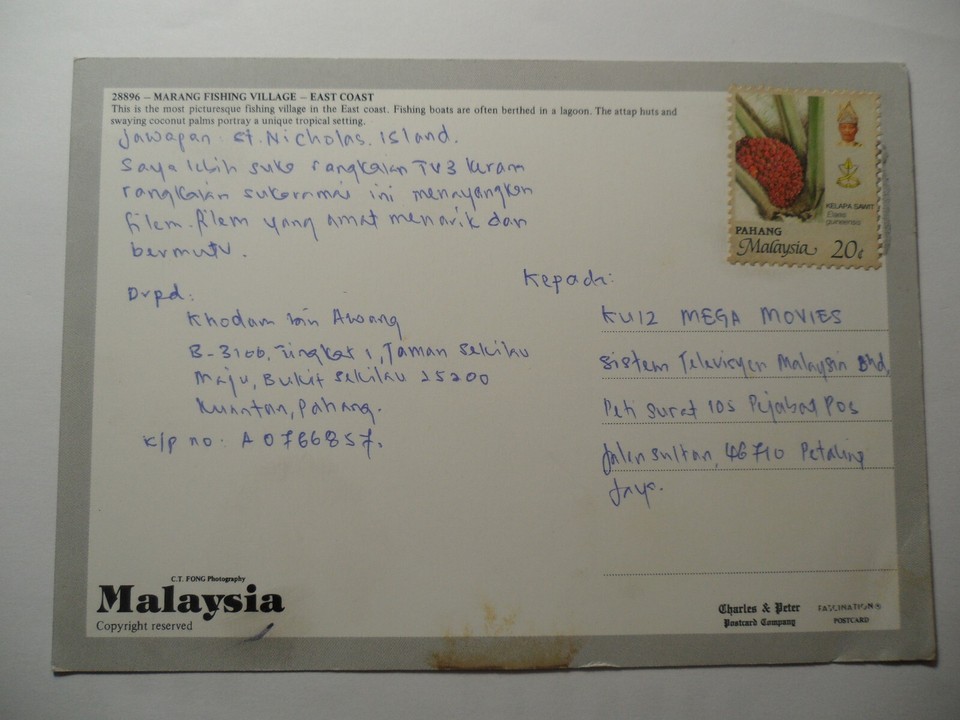 28896 – MARANG FISHING VILLAGE – EAST COAST
This is the most picturesque fishing village in the East coast. Fishing boats are often berthed in a lagoon. The attap huts and
swaying coconut palms portray a unique tropical setting.
Jawapan: St. Nicholas. Island.
Saya lebih suka rangkaian TV3 kerana
rangkaian sukaramai ini menayangkan
filem-filem yang amat menarik dan
bermutu.
Drpd:
Khodam bin Awang
B-3106, Tingkat 1, Taman Sekilau
Maju, Bukit Sekilau 25200
Kuantan, Pahang.
K/p no: A0766857.
KELAPA SAWIT
Elaeis
guineensis
PAHANG
Malaysia 20¢
Kepada:
KUIZ MEGA MOVIES
Sistem Televisyen Malaysia Bhd,
Peti Surat 105 Pejabat Pos
Jalan Sultan, 46710 Petaling
Jaya.
C.T. FONG Photography
Malaysia
Copyright reserved
Charles & Peter
Postcard Company
FASCINATION®
POSTCARD